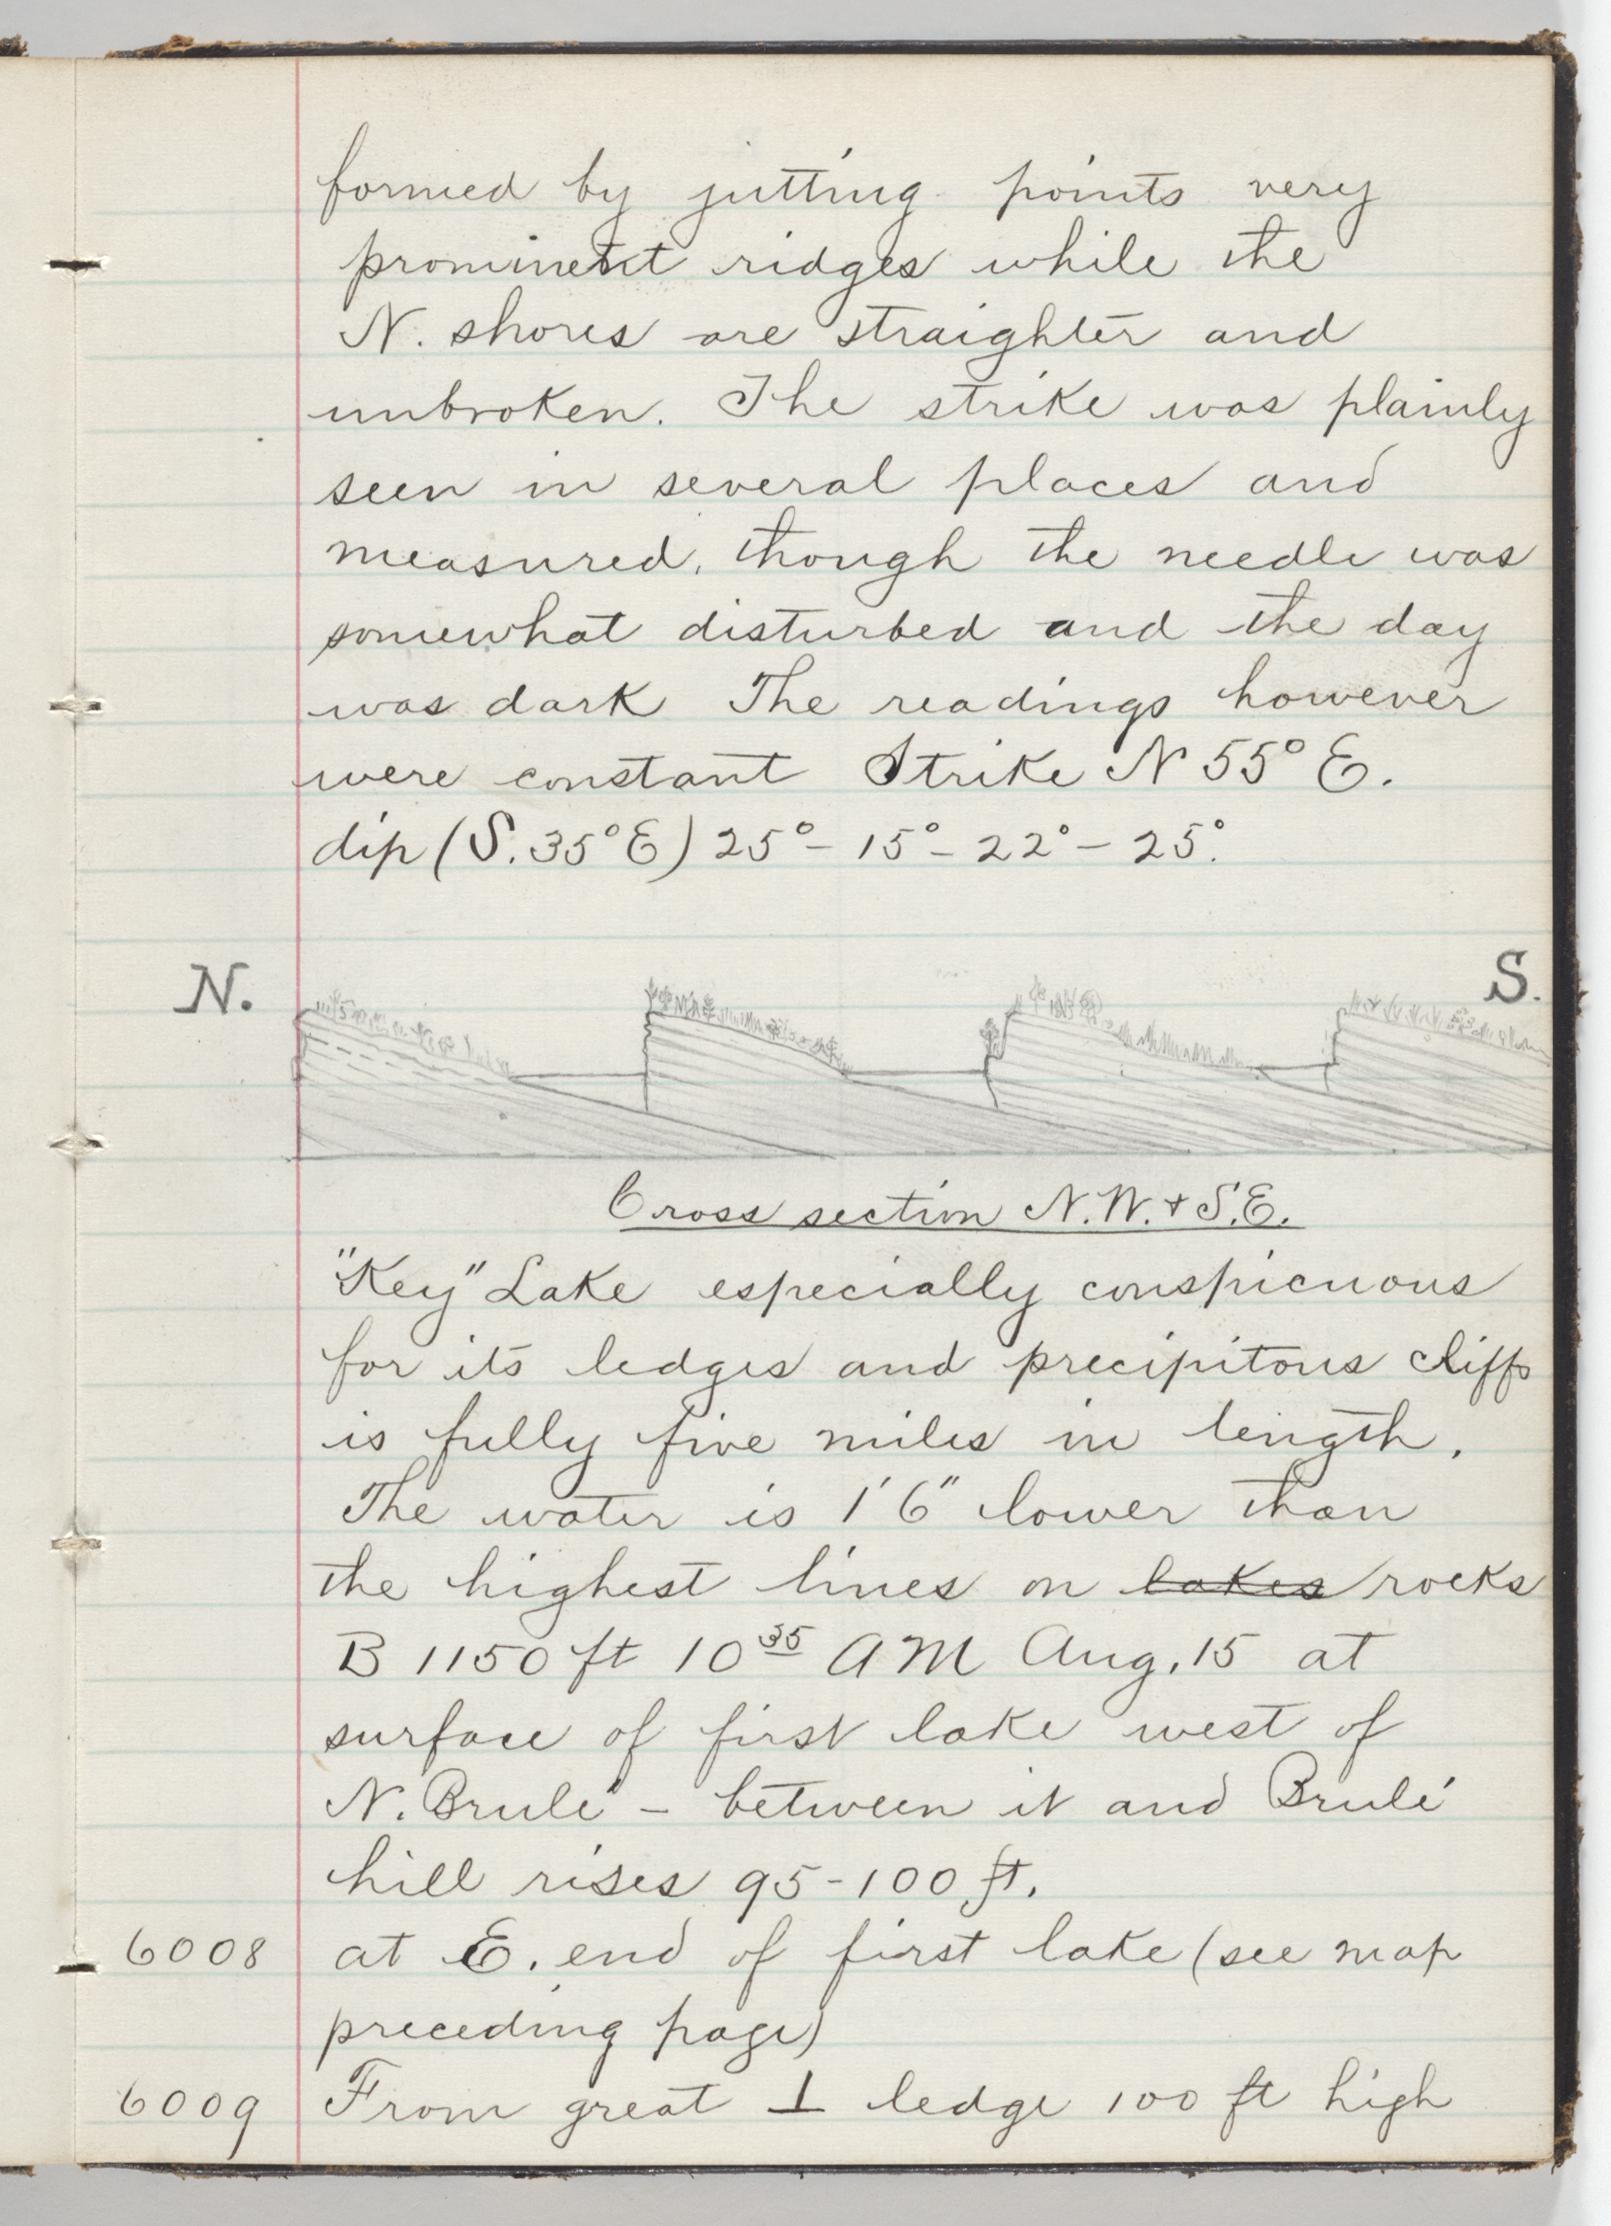 formed by jutting points very
prominent ridges while the
N. shores are straighter and
unbroken. The strike was plainly
seen in several places and
measured, though the needle was
somewhat disturbed and the day
was dark The readings however
were constant Strike N 55° E.
dip (S. 35° E) 25° – 15° – 22° – 25°.
N. S.
Cross section N.W. + S.E.
"Key" Lake especially conspicuous
for its ledges and precipitous cliffs
is fully five miles in length.
The water is 1' 6" lower than
the highest lines on lakes rocks
B 1150 ft 10 35 AM Aug. 15 at
surface of first lake west of
N. Brulé – between it and Brulé
hill rises 95-100 ft.
6008 at E. end of first lake (see map
preceding page)
6009 From great ⊥ ledge 100 ft high